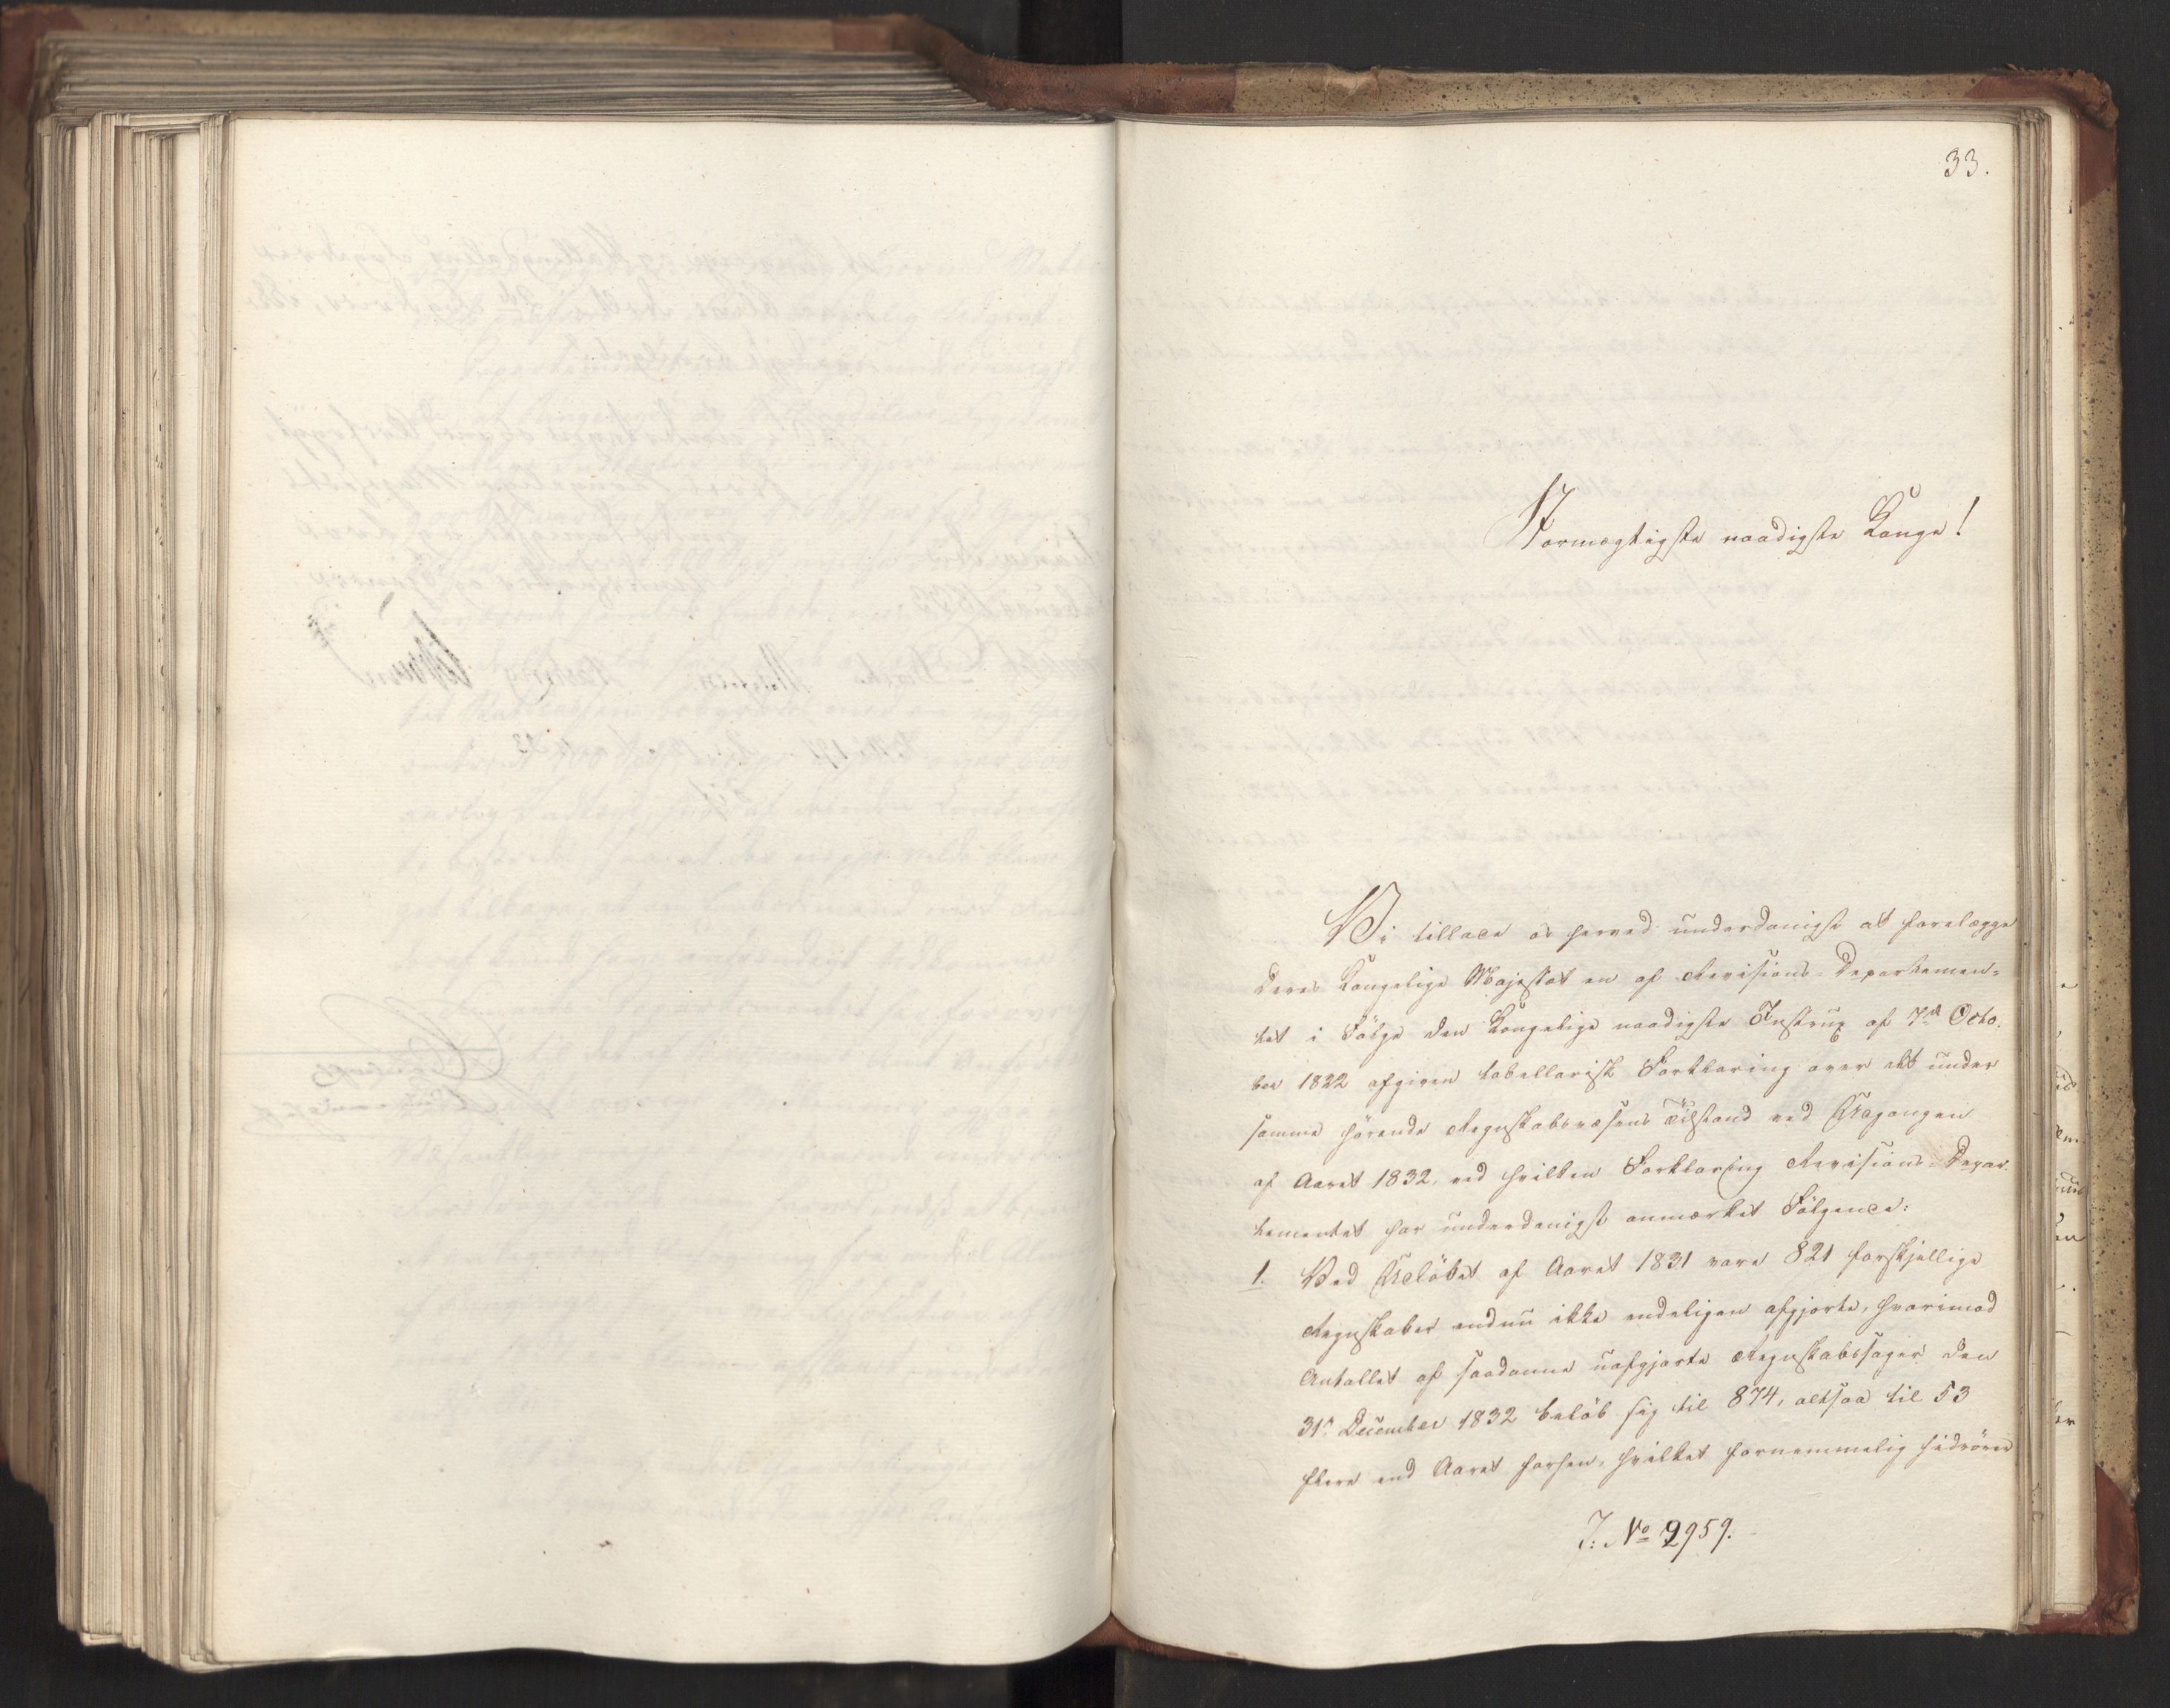 33.
Stormægtigste naadigste Konge!
Vi tillade os herved underdanigst at forelægge
Deres Kongelige Majestæt en af Revisions-Departemen-
tet i Følge den Kongelige naadigste Instrux af 7de Octo-
ber 1822 afgiven tabellarisk Forklaring over det under
samme hørende Regnskabsvæsens Tilstand ved Udgangen
af Aaret 1832, ved hvilken Forklaring Revisions-Depar-
tementet har underdanigst anmærket Følgende:
1. Ved Udløbet af Aaret 1831 vare 821 forskjellige
Regnskaber endnu ikke endeligen afgjorte, hvorimod
Antallet af saadanne uafgjorte Regnskabssager den
31te December 1832 beløb sig til 874, altsaa til 53
flere end Aaret forhen, hvilket fornemmelig hidrører
J: No 2959.